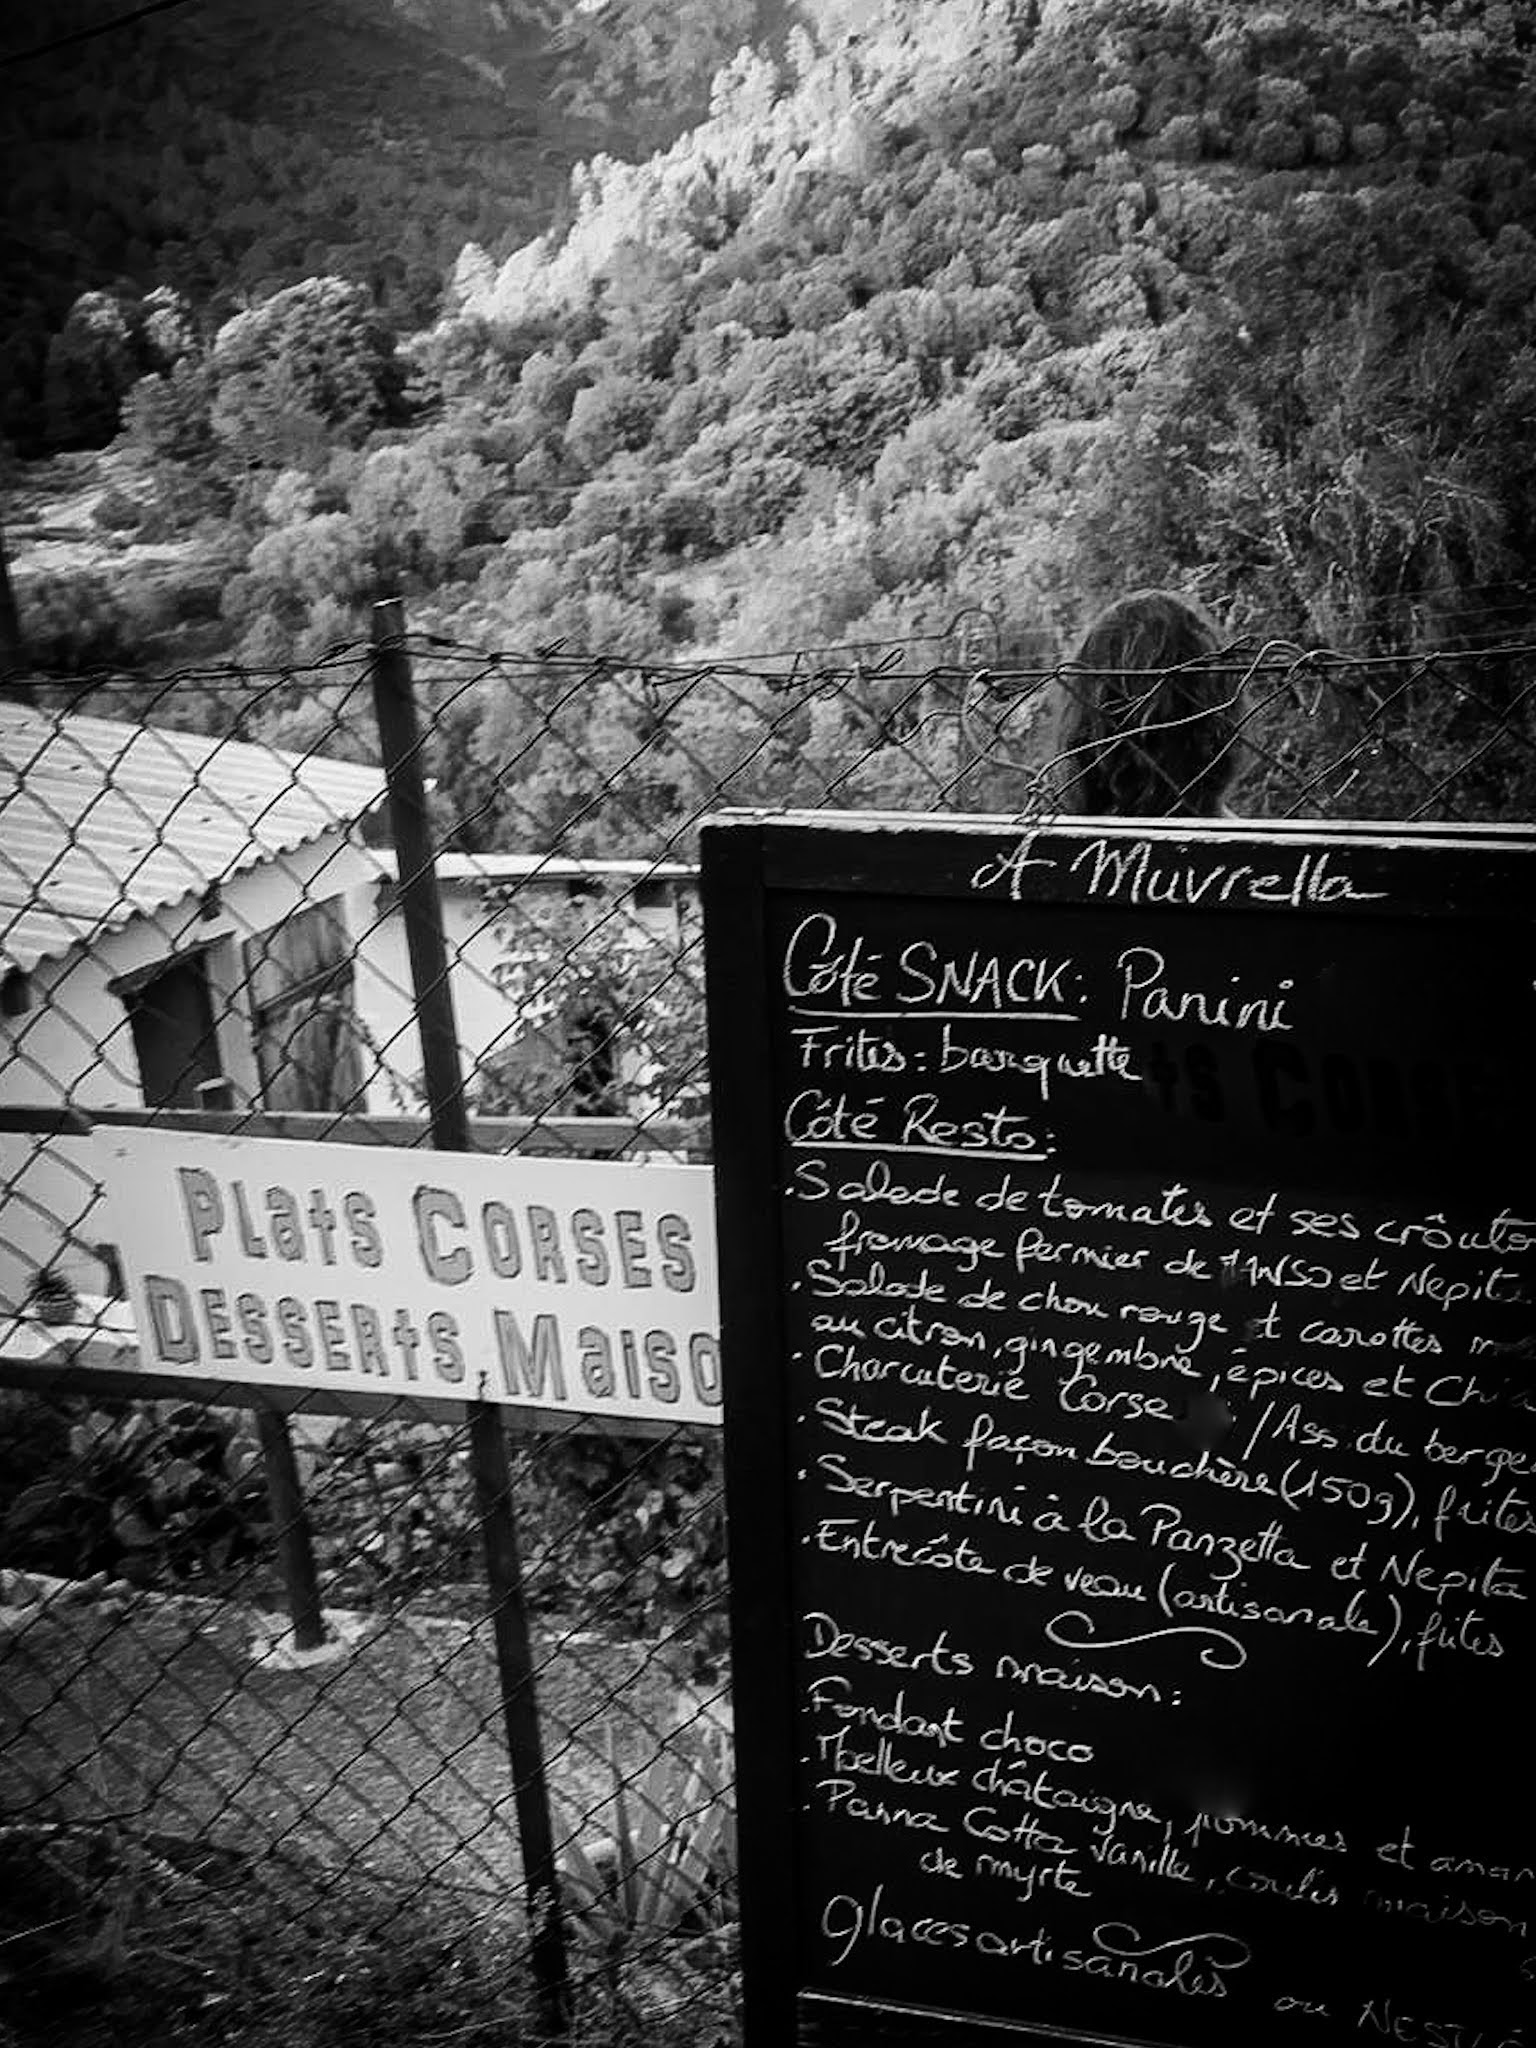 PLats CORSES
DESSERts MaIsO
A Muvrella
Côté SNACK: Panini
Frites: barquette
Côté Resto:
.Salade de tomates et ses croûto
fromage fermier de et Nepita
.Salade de chou rouge et carottes
au citron, gingembre, épices et Chi
.Charcuterie Corse /Ass. du berge
.Steak façon bouchère (150g), frites
.Serpentini à la Panzetta et Nepita
.Entrecôte de veau (artisanale), frites
Desserts maison:
.Fondant choco
.Moelleux châtaigne, pommes et aman
.Panna Cotta vanille, coulis maison
de myrte
glaces artisanales ou NESTLé